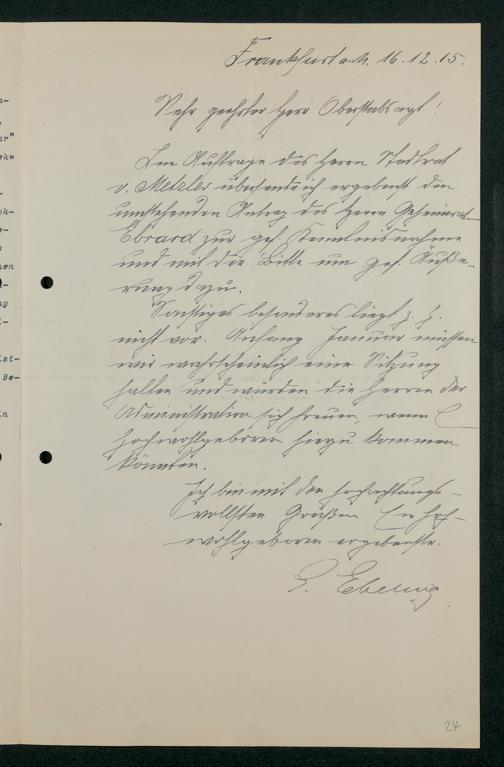 Frankfurt a. M. 16.12.15.
Sehr geehrter Herr Oberstabsarzt!
Im Auftrage des Herrn Stadtrat
v. Metzler übersende ich ergebenst den
umstehenden Antrag des Herrn Geheimrat
Ebrard zur gef. Kenntnisnahme
und mit der Bitte um gef. Äuße-
rung dazu.
Sonstiges besonderes liegt z. Z.
nicht vor. Anfang Januar müssen
wir wahrscheinlich eine Sitzung
halten und würden die Herren der
Administration sich freuen, wenn E
hochwohlgeboren hierzu kommen
könnten.
Ich bin mit den hochachtungs-
vollsten Grüßen Eu hoch-
wohlgeboren ergebenster.
Ebeling
24